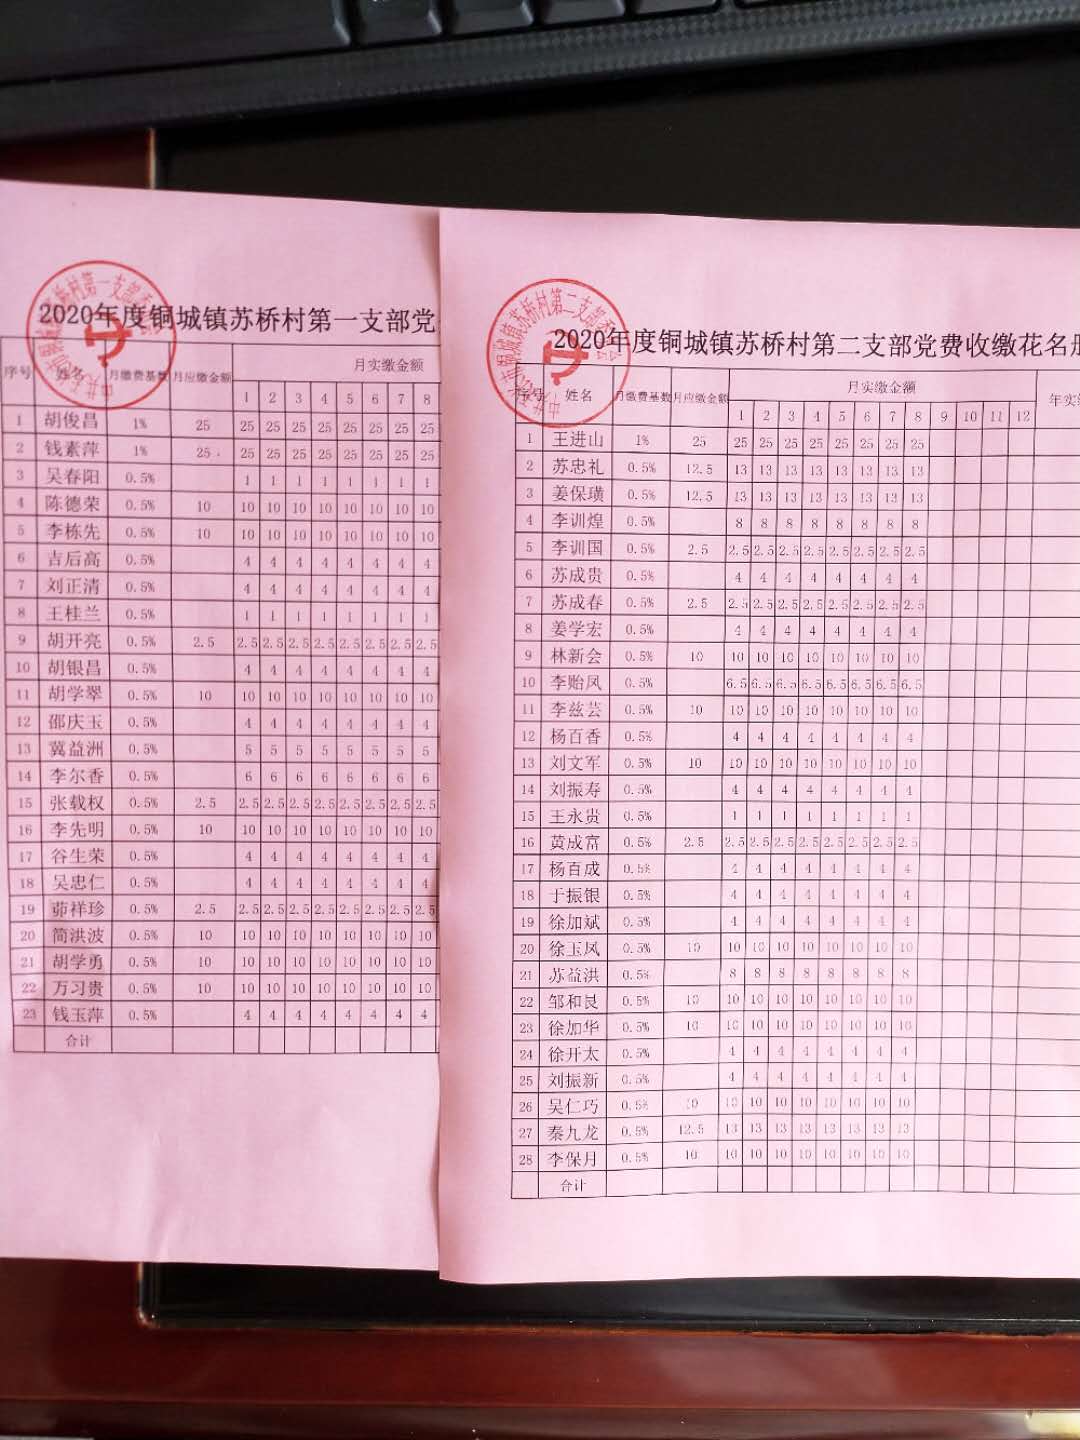 2020年度铜城镇苏桥村第一支部党
序号 姓名 月缴费基数 月应缴金额 月实缴金额
1 2 3 4 5 6 7 8
1 胡俊昌 1% 25 25 25 25 25 25 25 25 25
2 钱素萍 1% 25 25 25 25 25 25 25 25 25
3 吴春阳 0.5% 1 1 1 1 1 1 1 1
4 陈德荣 0.5% 10 10 10 10 10 10 10 10 10
5 李栋先 0.5% 10 10 10 10 10 10 10 10 10
6 吉后高 0.5% 4 4 4 4 4 4 4 4
7 刘正清 0.5% 4 4 4 4 4 4 4 4
8 王桂兰 0.5% 1 1 1 1 1 1 1 1
9 胡开亮 0.5% 2.5 2.5 2.5 2.5 2.5 2.5 2.5 2.5 2.5
10 胡银昌 0.5% 4 4 4 4 4 4 4 4
11 胡学翠 0.5% 10 10 10 10 10 10 10 10 10
12 邵庆玉 0.5% 4 4 4 4 4 4 4 4
13 冀益洲 0.5% 5 5 5 5 5 5 5 5
14 李尔香 0.5% 6 6 6 6 6 6 6 6
15 张载权 0.5% 2.5 2.5 2.5 2.5 2.5 2.5 2.5 2.5 2.5
16 李先明 0.5% 10 10 10 10 10 10 10 10 10
17 谷生荣 0.5% 4 4 4 4 4 4 4 4
18 吴忠仁 0.5% 4 4 4 4 4 4 4 4
19 茆祥珍 0.5% 2.5 2.5 2.5 2.5 2.5 2.5 2.5 2.5 2.5
20 简洪波 0.5% 10 10 10 10 10 10 10 10 10
21 胡学勇 0.5% 10 10 10 10 10 10 10 10 10
22 万习贵 0.5% 10 10 10 10 10 10 10 10 10
23 钱玉萍 0.5% 4 4 4 4 4 4 4 4
合计
2020年度铜城镇苏桥村第二支部党费收缴花名册
序号 姓名 月缴费基数 月应缴金额 月实缴金额 年实
1 2 3 4 5 6 7 8 9 10 11 12
1 王进山 1% 25 25 25 25 25 25 25 25 25
2 苏忠礼 0.5% 12.5 13 13 13 13 13 13 13 13
3 姜保璜 0.5% 12.5 13 13 13 13 13 13 13 13
4 李训煌 0.5% 8 8 8 8 8 8 8 8
5 李训国 0.5% 2.5 2.5 2.5 2.5 2.5 2.5 2.5 2.5 2.5
6 苏成贵 0.5% 4 4 4 4 4 4 4 4
7 苏成春 0.5% 2.5 2.5 2.5 2.5 2.5 2.5 2.5 2.5 2.5
8 姜学宏 0.5% 4 4 4 4 4 4 4 4
9 林新会 0.5% 10 10 10 10 10 10 10 10 10
10 李贻凤 0.5% 6.5 6.5 6.5 6.5 6.5 6.5 6.5 6.5
11 李兹芸 0.5% 10 10 10 10 10 10 10 10 10
12 杨百香 0.5% 4 4 4 4 4 4 4 4
13 刘文军 0.5% 10 10 10 10 10 10 10 10 10
14 刘振寿 0.5% 4 4 4 4 4 4 4 4
15 王永贵 0.5% 1 1 1 1 1 1 1 1
16 黄成富 0.5% 2.5 2.5 2.5 2.5 2.5 2.5 2.5 2.5 2.5
17 杨百成 0.5% 4 4 4 4 4 4 4 4
18 于振银 0.5% 4 4 4 4 4 4 4 4
19 徐加斌 0.5% 4 4 4 4 4 4 4 4
20 徐玉凤 0.5% 10 10 10 10 10 10 10 10 10
21 苏益洪 0.5% 8 8 8 8 8 8 8 8
22 邹和良 0.5% 10 10 10 10 10 10 10 10 10
23 徐加华 0.5% 10 10 10 10 10 10 10 10 10
24 徐开太 0.5% 4 4 4 4 4 4 4 4
25 刘振新 0.5% 4 4 4 4 4 4 4 4
26 吴仁巧 0.5% 10 10 10 10 10 10 10 10 10
27 秦九龙 0.5% 12.5 13 13 13 13 13 13 13 13
28 李保月 0.5% 10 10 10 10 10 10 10 10 10
合计